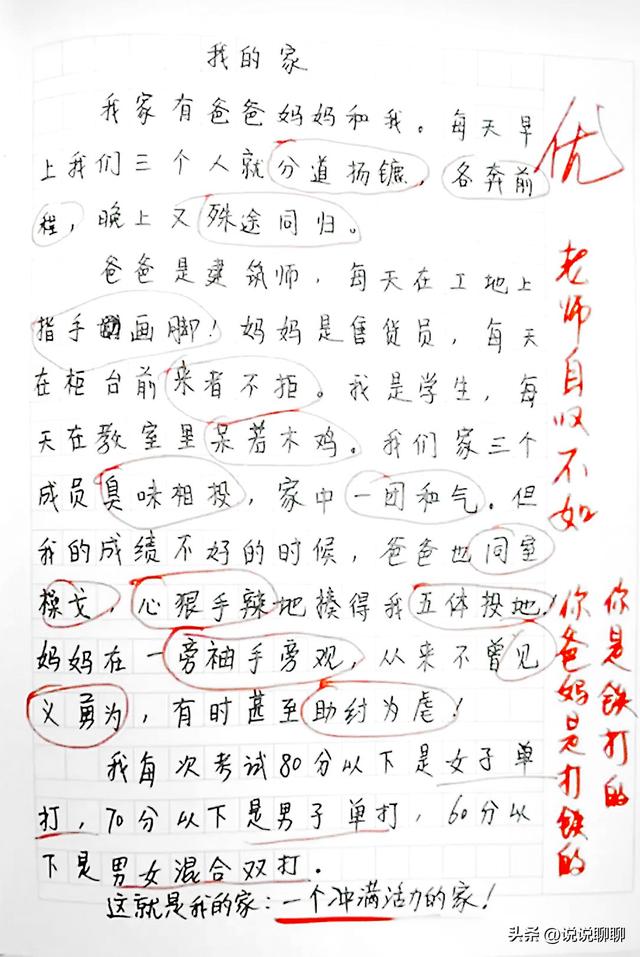 我的家
我家有爸爸妈妈和我。每天早
上我们三个人就分道扬镳，各奔前
程，晚上又殊途同归。
爸爸是建筑师，每天在工地上
指手画脚！妈妈是售货员，每天
在柜台前来者不拒。我是学生，每
天在教室里呆若木鸡。我们家三个
成员臭味相投，家中一团和气。但
我的成绩不好的时候，爸爸也同室
操戈，心狠手辣地揍得我五体投地！
妈妈在一旁袖手旁观，从来不曾见
义勇为，有时甚至助纣为虐！
我每次考试80分以下是女子单
打，70分以下是男子单打，60分以
下是男女混合双打．
这就是我的家：一个冲满活力的家！
优
老师自叹不如
你是铁打的
你爸妈是打铁的
头条 @说说聊聊